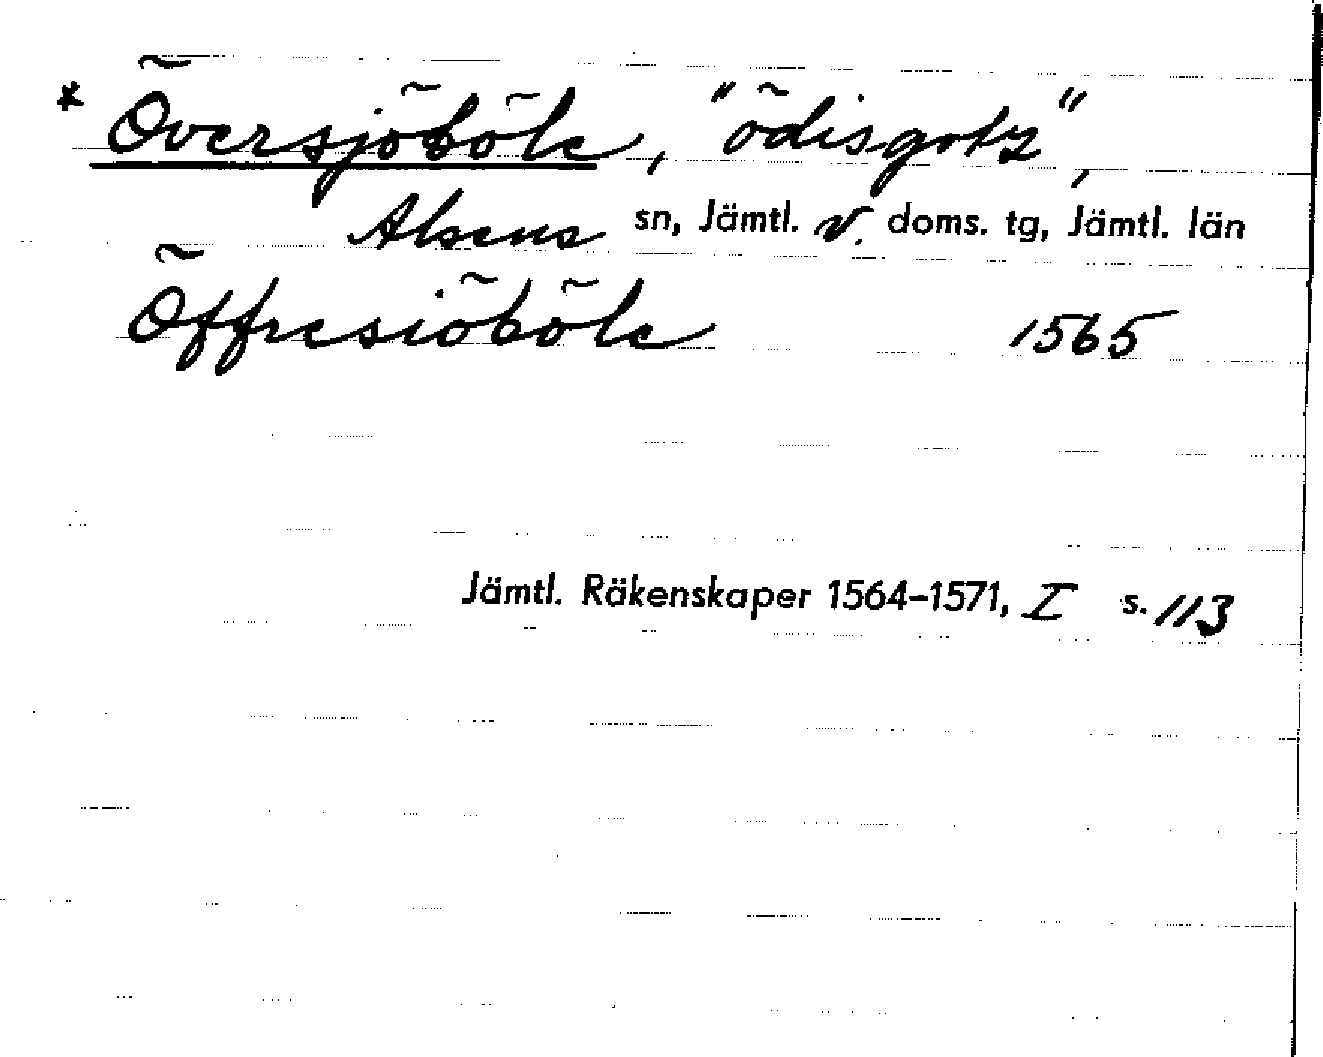 * Översjöböle, "ödisgotz",
Alsens sn, Jämtl. v. doms. tg, Jämtl. län
Öffresiöböle 1565
Jämtl. Räkenskaper 1564-1571, I s. 113